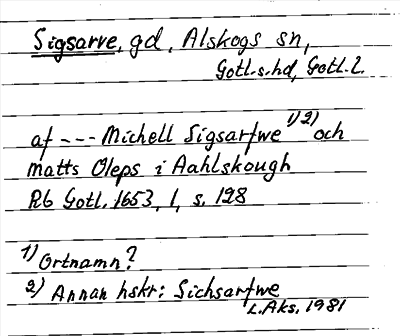 Sigsarve, gd, Alskogs sn,
Gotl. s. hd, Gotl. l.
af --- Michell Sigsarfwe 1)2) och
Matts Oleps i Aahlskough
Rb Gotl. 1653, 1, s. 128
1) Ortnamn?
2) Annan hskr: Sichsarfwe
L. Aks. 1981